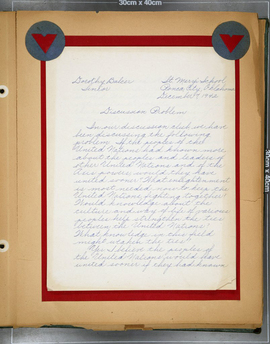 30cm x 40cm
Dorothy Baker
Senior
St. Mary's School
Ponca City, Oklahoma
December 7, 1942
Discussion Problem
In our discussion club we have
been discussing the following
problem: If the peoples of the
United Nations had known more
about the peoples and leaders of
other United Nations and of the
Axis powers would they have
united sooner? What information
is most needed now to keep the
United Nations fighting together?
Would knowledge about the
culture and way of life of various
peoples help strengthen the ties
between the United Nations?
What knowledge in this field
might weaken the ties?
Yes, I believe the peoples of
the United Nations would have
united sooner if they had known
30cm x 40cm